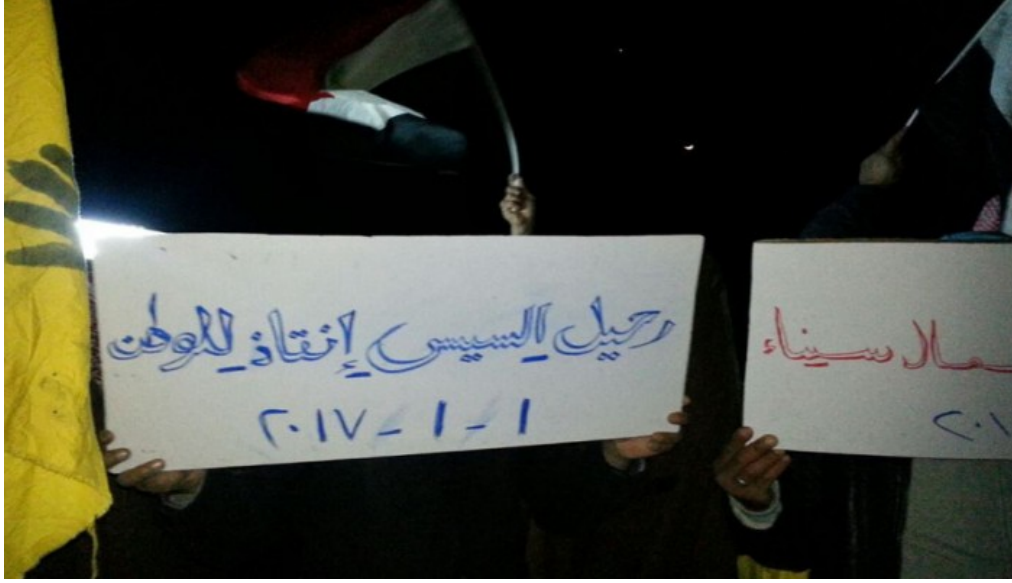 رحيل السيسى إنقاذ للوطن
١ - ١ - ٢٠١٧
سيناء